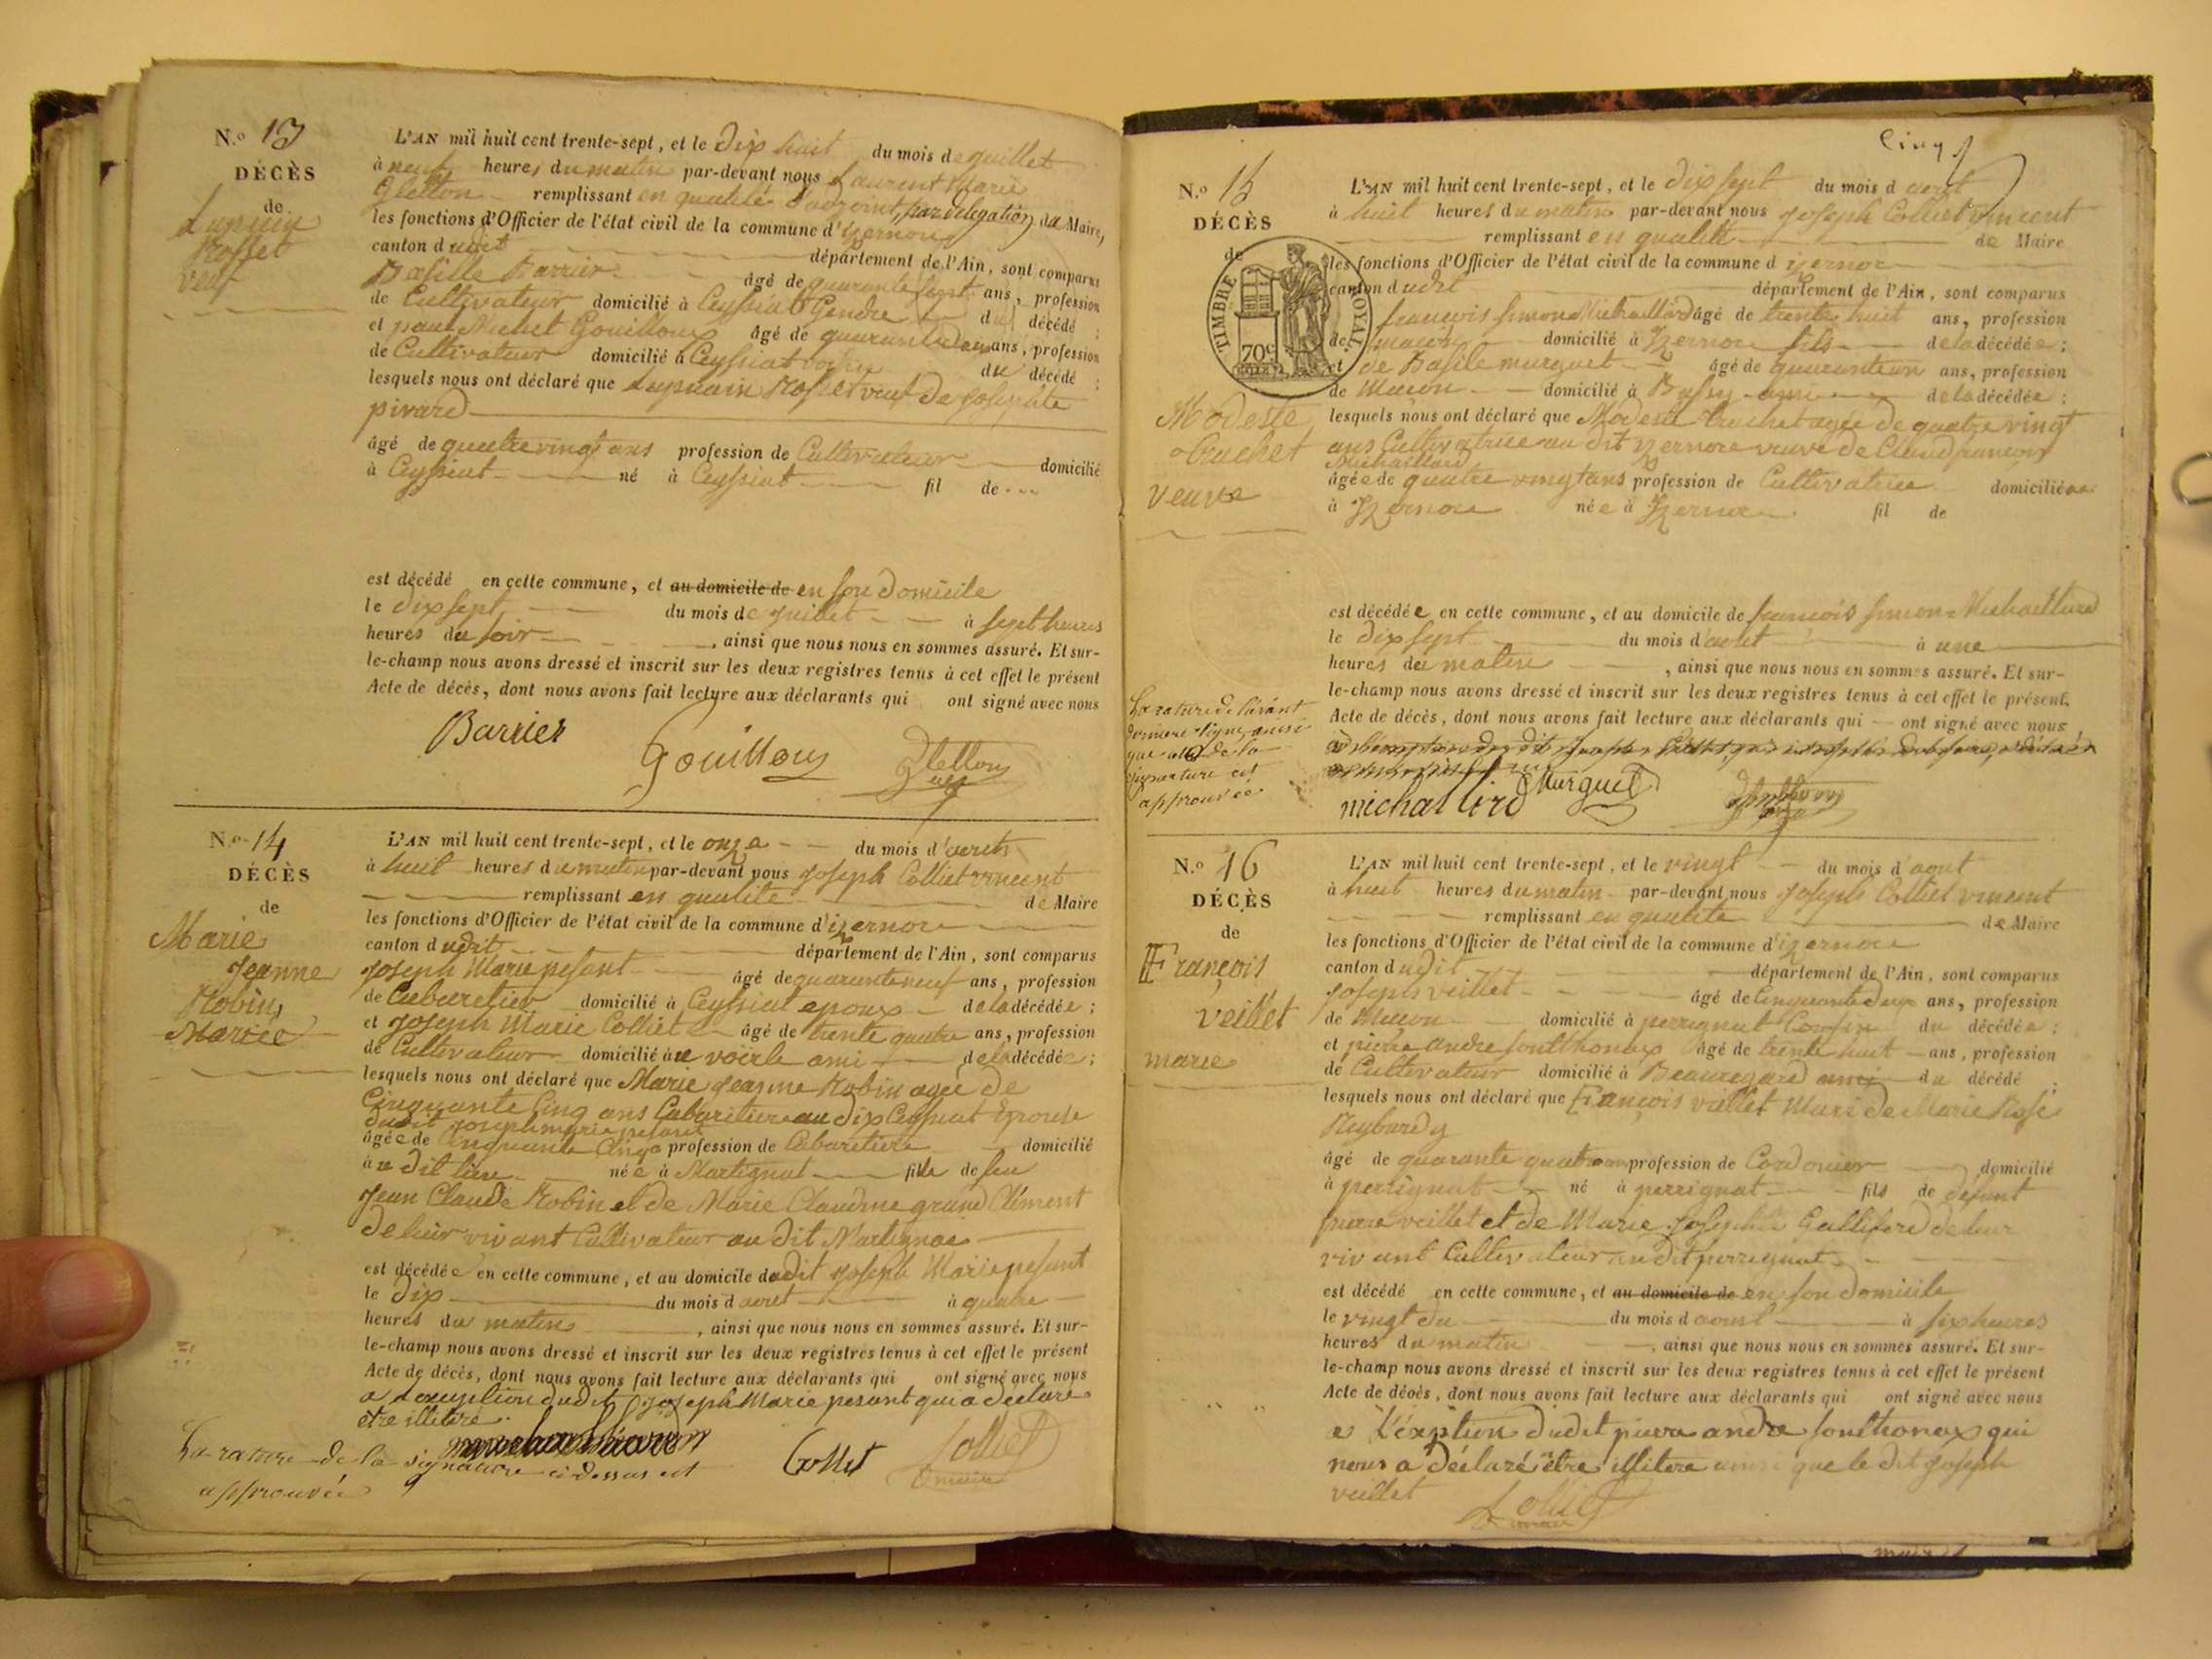 N.º 13
DÉCÈS
de
Lupicin
Rosset
veuf
L'AN mil huit cent trente-sept, et le dix huit du mois de juillet
à neuf heures du matin par-devant nous Laurent Marie
Gletton remplissant en qualité d'adjoint, par delegation du Maire,
les fonctions d'Officier de l'état civil de la commune d'izernore
canton dudit département de l'Ain, sont comparus
Basille Barrier âgé de quarante sept ans, profession
de Cultivateur domicilié à Ceyssiat Gendre du décédé ;
et paul Michel Gouilloux âgé de quarante deux ans, profession
de Cultivateur domicilié à Ceyssiat voisin du décédé ;
lesquels nous ont déclaré que Rosset veuf de Josephte
pivard
âgé de quatre vingt ans profession de Cultivateur domicilié
à Ceyssiat né à Ceyssiat fil de
est décédé en cette commune, et au domicile de en son domicile
le dix sept du mois de juillet à sept heures
heures du soir , ainsi que nous nous en sommes assuré. Et sur-
le-champ nous avons dressé et inscrit sur les deux registres tenus à cet effet le présent
Acte de décès, dont nous avons fait lecture aux déclarants qui ont signé avec nous
Barrier Gouilloux Gletton
N.º 14
DÉCÈS
de
Marie
Jeanne
Robin
Mariée
L'AN mil huit cent trente-sept, et le onze du mois d'aout
à huit heures du matin par-devant nous Joseph Colliet vincent
remplissant en qualité de Maire
les fonctions d'Officier de l'état civil de la commune d'izernore
canton dudit département de l'Ain, sont comparus
Joseph Marie pesant âgé de quarante neuf ans, profession
de Cabaretier domicilié à Ceyssiat epoux de la décédée ;
et Joseph Marie Colliet âgé de trente quatre ans, profession
de Cultivateur domicilié à ami de la décédée ;
lesquels nous ont déclaré que Marie Jeanne Robin agée de
Cinquante Cinq ans Cabaretiere au dix Ceyssiat Epouse
dudit Joseph marie pesant
âgée de Cinquante Cinq profession de Cabaretiere domicilié
au dit lieu née à Martignat fille de feu
Jean Claude Robin et de Marie Claudine grand Clément
de leur vivant Cultivateur au dit Martignat
est décédée en cette commune, et au domicile dudit Joseph Marie pesant
le dix du mois d aout à quatre
heures du matin , ainsi que nous nous en sommes assuré. Et sur-
le-champ nous avons dressé et inscrit sur les deux registres tenus à cet effet le présent
Acte de décès, dont nous avons fait lecture aux déclarants qui ont signé avec nous
a l'exception dudit Joseph Marie pesant qui a declaré
être illitéré.
La rature de la signature ci dessus est
approuvée
Collet Colliet
maire
Cinq
N.º 15
DÉCÈS
de
TIMBRE ROYAL
70c
Modeste
Truchet
veuve
L'AN mil huit cent trente-sept, et le dix sept du mois d aout
à huit heures du matin par-devant nous Joseph Colliet vincent
remplissant en qualité de Maire
les fonctions d'Officier de l'état civil de la commune d izernore
canton dudit département de l'Ain, sont comparus
françois simon Michaillard âgé de trente huit ans, profession
de macon domicilié à Izernore fils de la décédée ;
et de Basile murguet âgé de quarante un ans, profession
de Macon domicilié à Bussy ami de la décédée ;
lesquels nous ont déclaré que Modeste truchet agée de quatre vingt
ans Cultivatrice au dit izernore veuve de Claud françois
Michaillard
âgée de quatre vingt ans profession de Cultivatrice domiciliée
à Izernore née à Izernore fil de
est décédée en cette commune, et au domicile de françois simon Michaillard
le dix sept du mois d'aout à une
heures du matin , ainsi que nous nous en sommes assuré. Et sur-
le-champ nous avons dressé et inscrit sur les deux registres tenus à cet effet le présent.
Acte de décès, dont nous avons fait lecture aux déclarants qui ont signé avec nous
La rature de l'avant
derniere ligne ainsi
que celle de la
signature est
approuvée
michallard Murguet
N.º 16
DÉCÈS
de
François
veillet
marie
L'AN mil huit cent trente-sept, et le vingt du mois d'aout
à huit heures du matin par-devant nous Joseph Colliet vincent
remplissant en qualité de Maire
les fonctions d'Officier de l'état civil de la commune d'izernore
canton dudit département de l'Ain, sont comparus
Joseph veillet âgé de Cinquante deux ans, profession
de Macon domicilié à perrignat Cousin du décédée ;
et pierre andre sonthonax âgé de trente huit ans, profession
de Cultivateur domicilié à Beauregard ami du décédé ;
lesquels nous ont déclaré que François veillet Mari de Marie Rose
Reybard
âgé de quarante quatre ans profession de Cordonier domicilié
à perrignat né à perrignat fils de défunt
pierre veillet et de Marie Josephte Galliford de leur
vivant Cultivateur au dit perrignat
est décédé en cette commune, et au domicile de en son domicile
le vingt du du mois d aoust à six heures
heures du matin , ainsi que nous nous en sommes assuré. Et sur-
le-champ nous avons dressé et inscrit sur les deux registres tenus à cet effet le présent
Acte de décès, dont nous avons fait lecture aux déclarants qui ont signé avec nous
a l'éxeption dudit pierre andre sonthonax qui
nous a déclaré être illitere ainsi que le dit Joseph
veillet
Colliet